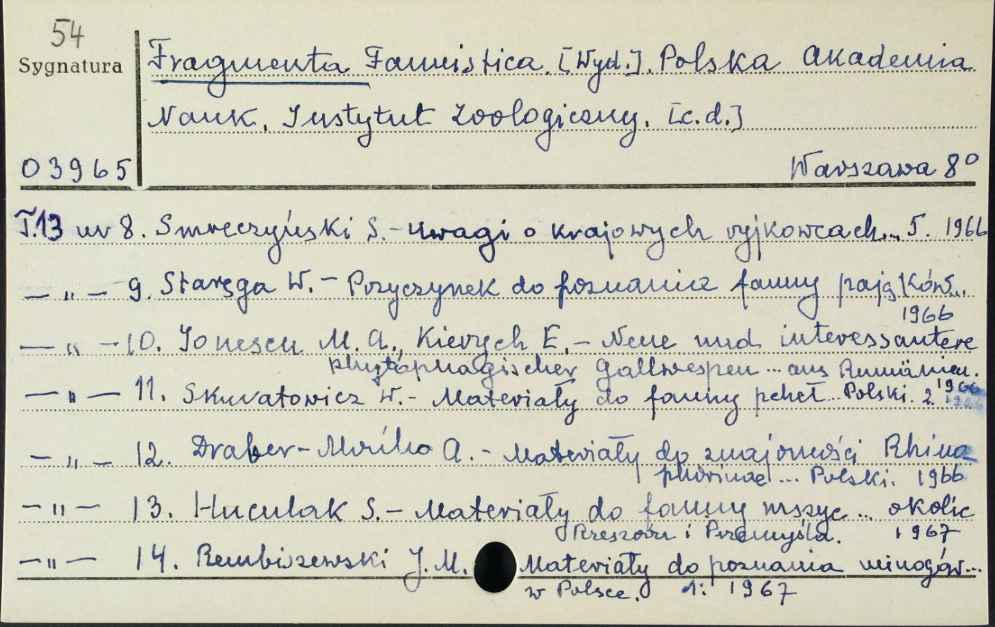 54
Sygnatura
Fragmenta Faunistica. [Wyd.]. Polska Akademia
Nauk. Instytut Zoologiczny. [c.d.]
03965
Warszawa 8°
T.13 nr 8. Smreczyński S. - Uwagi o krajowych ryjkowcach... 5. 1966
— " — 9. Staręga W. - Pozyczynek do poznania fauny pająków...
1966
— " — 10. Ionescu M. A., Kievych E. - Neue und interessantere
phytophagischer Gallwespen ... aus Rumänien.
1966
— " — 11. Skuratowicz W. - Materiały do fauny pcheł .. Polski. 2
— " — 12. Draber-Mońko A. - Materiały do znajomości Rhina
phorinae ... Polski. 1966
— " — 13. Huculak S. - Materiały do fauny mszyc ... okolic
Rzeszowa i Przemyśla. 1967
— " — 14. Rembiszewski J. M. Materiały do poznania minogów...
w Polsce. 1: 1967